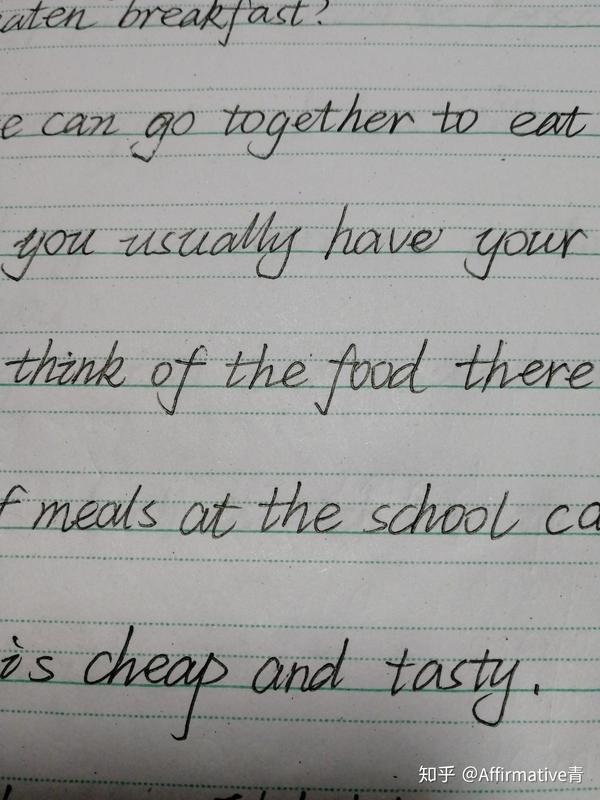 aten breakfast?
e can go together to eat
you usually have your
think of the food there
f meals at the school ca
is cheap and tasty.
知乎 @Affirmative青